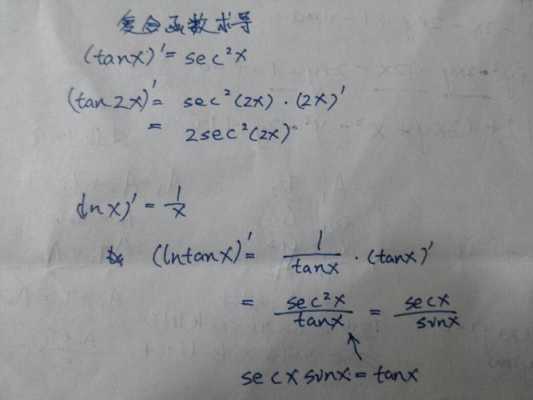 复合函数求导
(tanx)' = sec²x
(tan2X)' = sec²(2x)·(2x)'
= 2sec²(2x)
(lnx)' = 1/x
(lntanx)' = 1/tanx · (tanx)'
= sec²x/tanx = secx/sinx
secx sinx = tanx